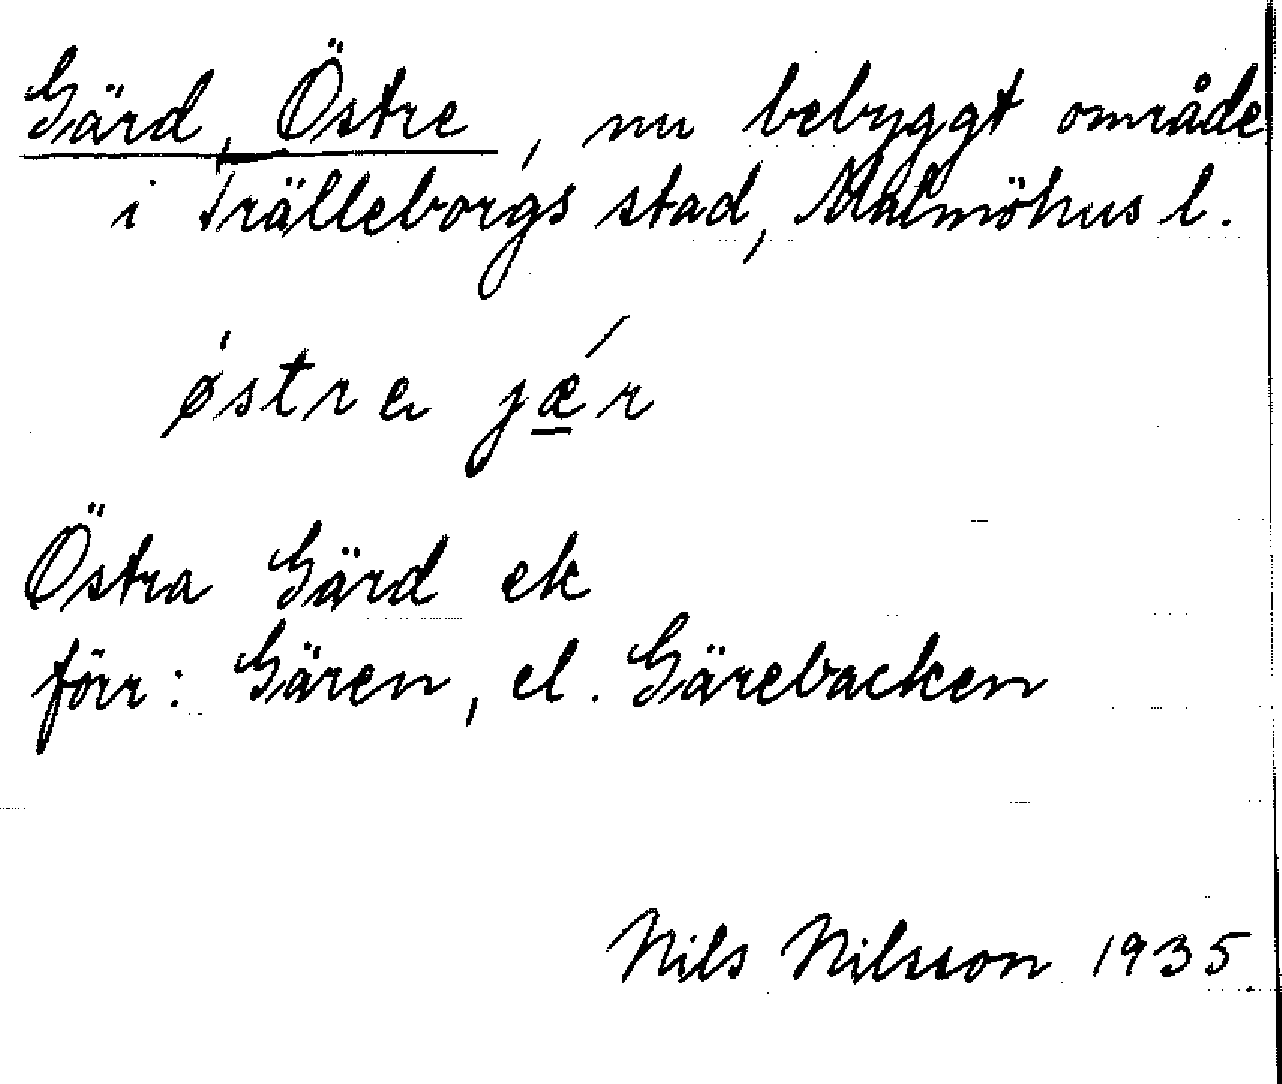 Gärd, Östre, nu bebyggt område
i Trälleborgs stad, Malmöhus l.
østrə jǽ̲r
Östra Gärd ek
förr: Gären, el. Gärebacken
Nils Nilsson 1935.